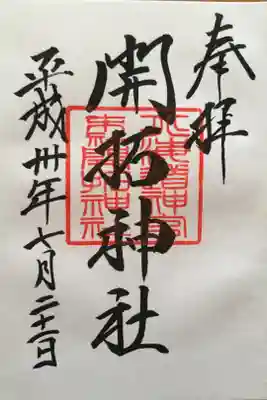 奉拝
開拓神社
北海道神宮
末社開拓神社
平成卅年七月二十二日